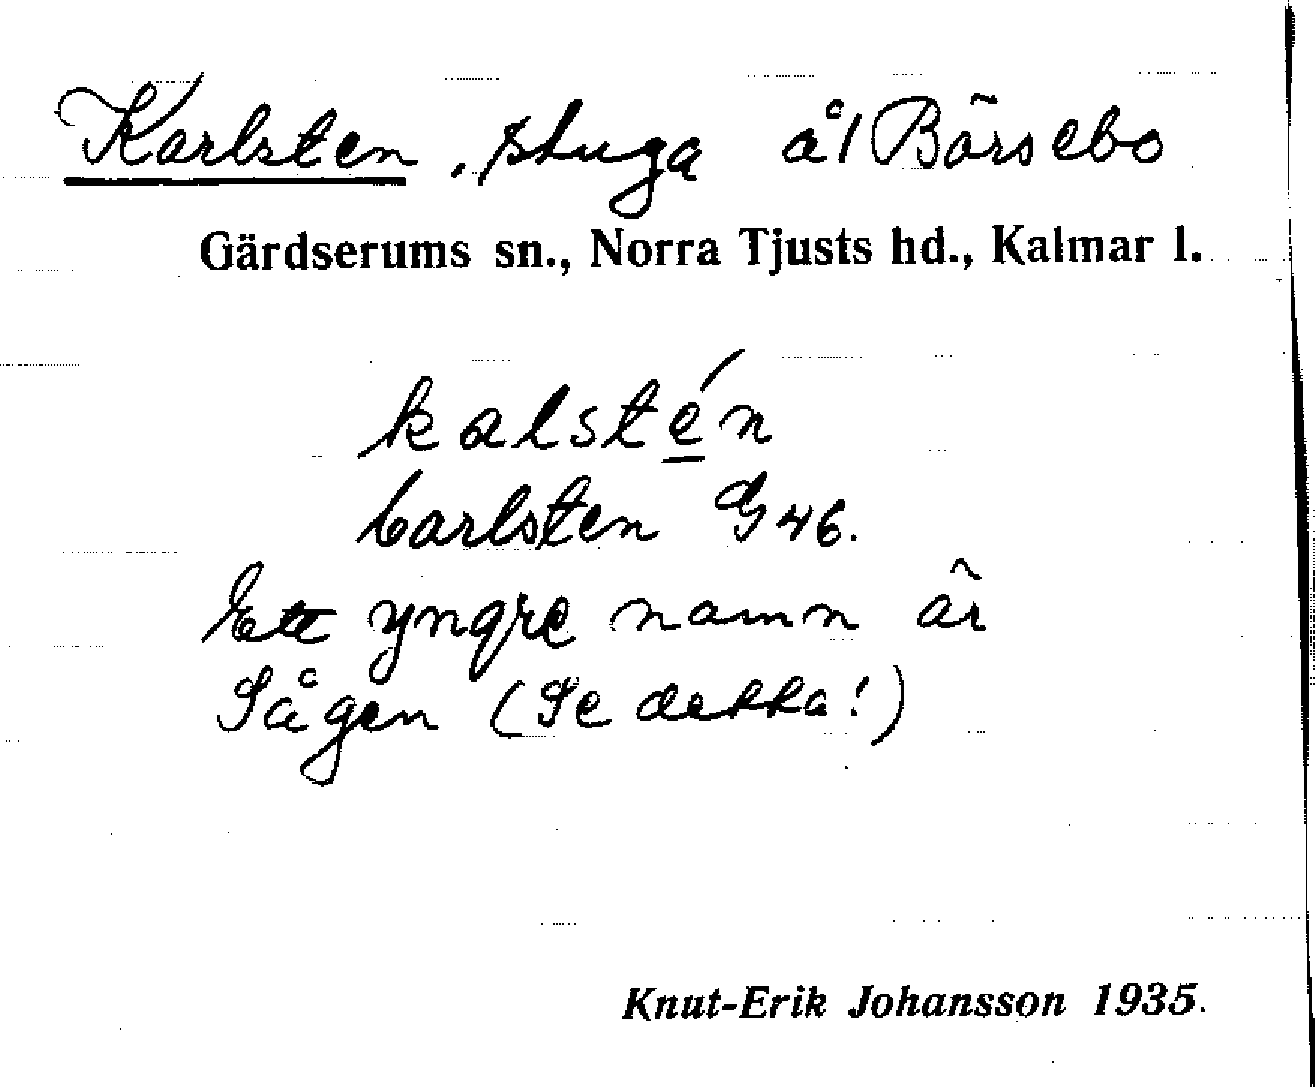 Karlsten, stuga å/ Bärsebo
Gärdserums sn., Norra Tjusts hd., Kalmar l.
kalstén
Carlsten G 46.
Ett yngre namn är
Sågen (Se detta!)
Knut-Erik Johansson 1935.